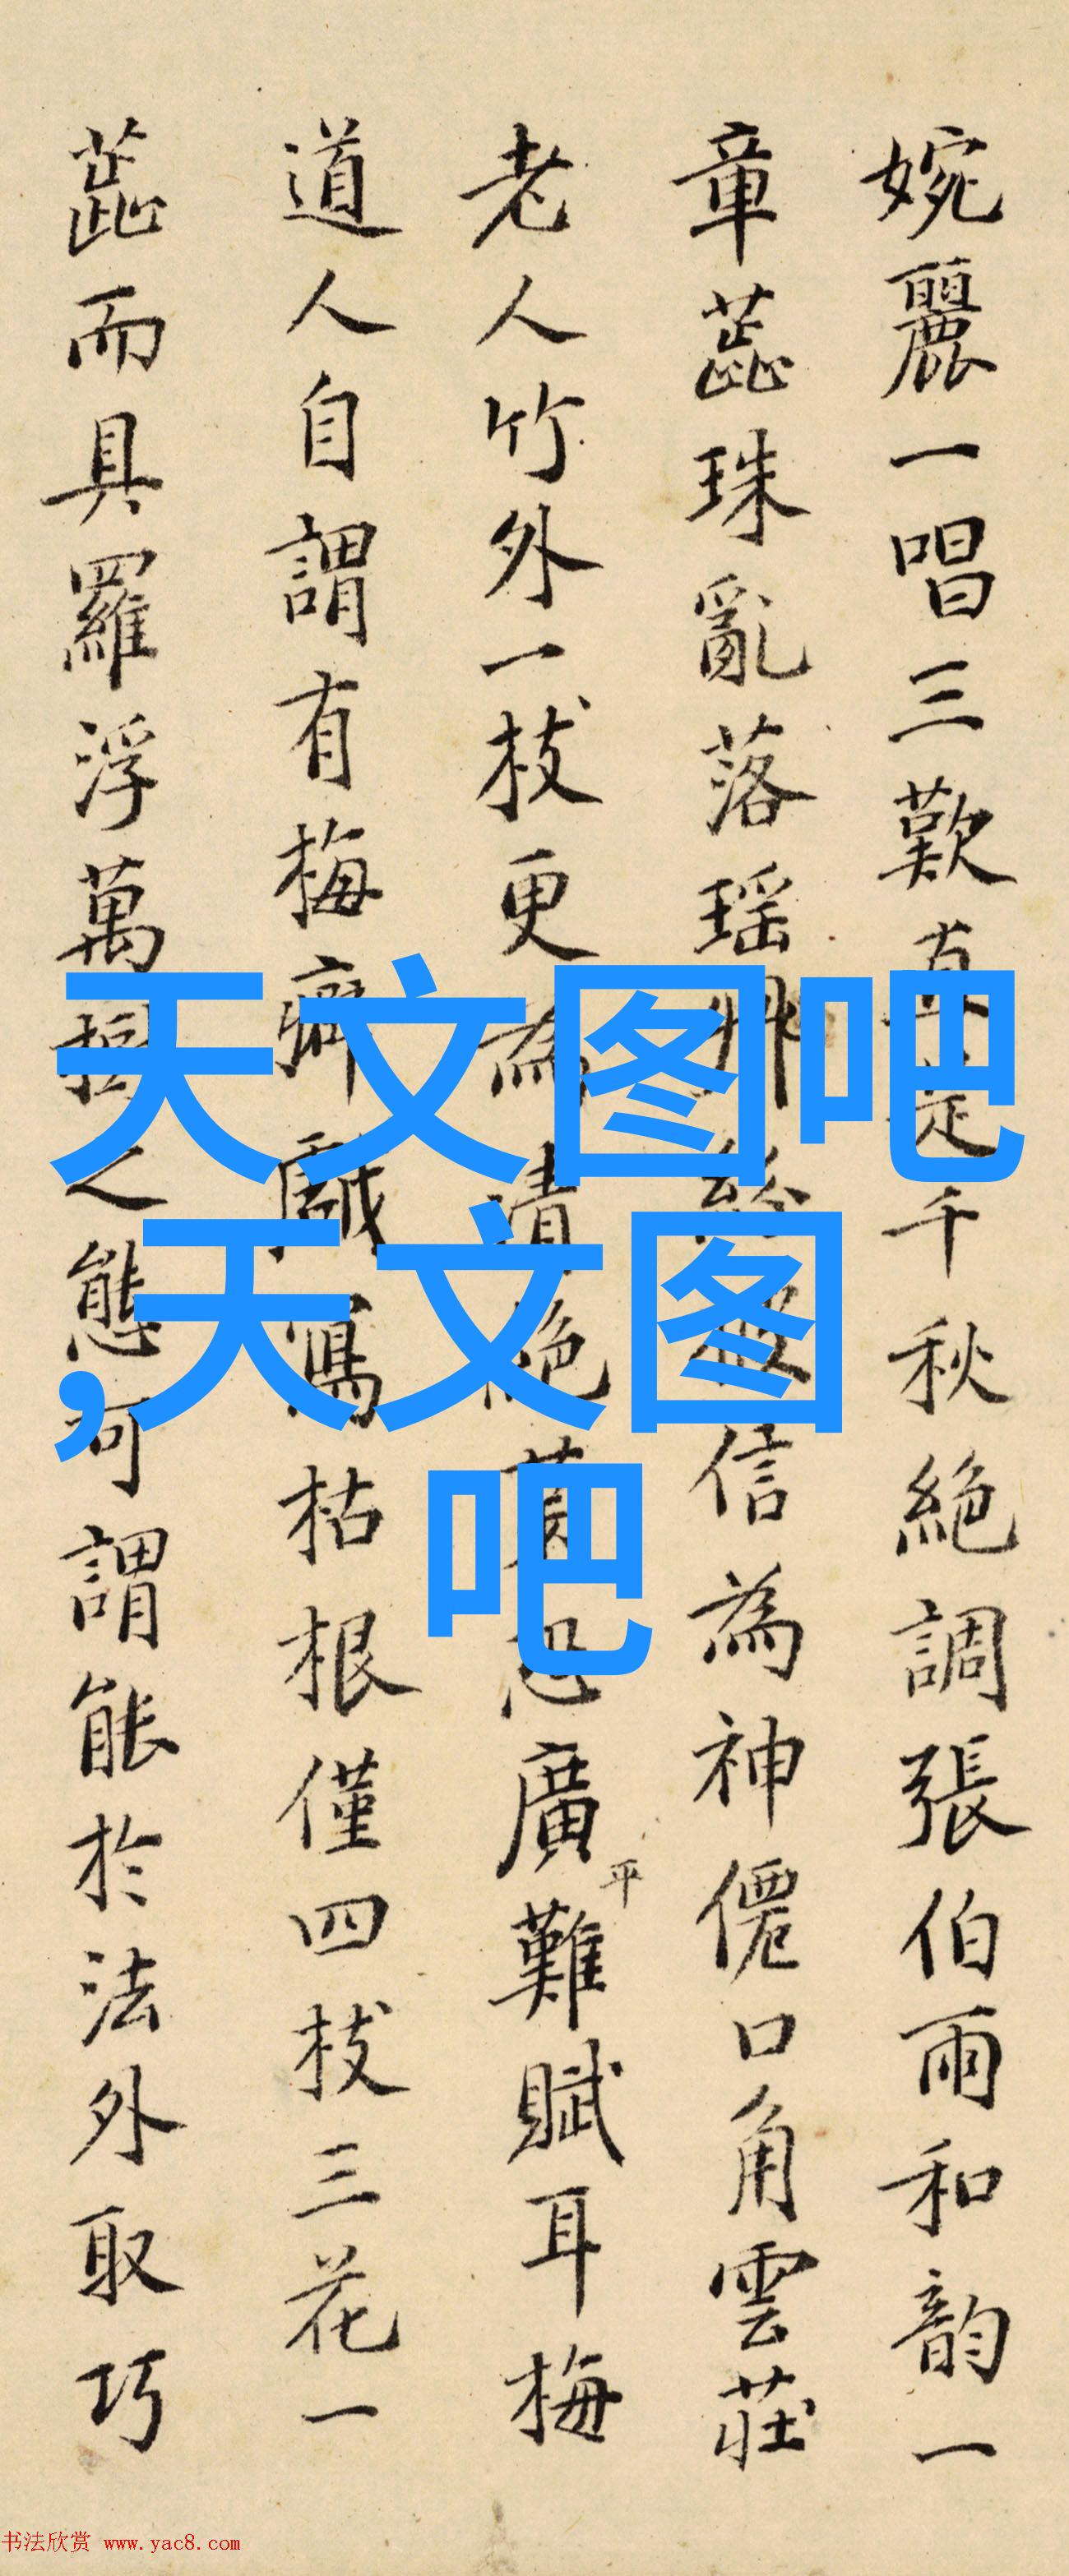 婉麗一唱三歎真是千秋絕調張伯雨和韵一
章蕋珠亂落瑶 信為神僊口角雲莊
老人竹外一枝更為清絕 恐廣平難賦耳梅
道人自謂有梅癖戲寫枯根僅四枝三花一
蕋而具羅浮萬樹之態可謂能於法外取巧
天文图吧
,天文图
吧
书法欣赏 www.yac8.com